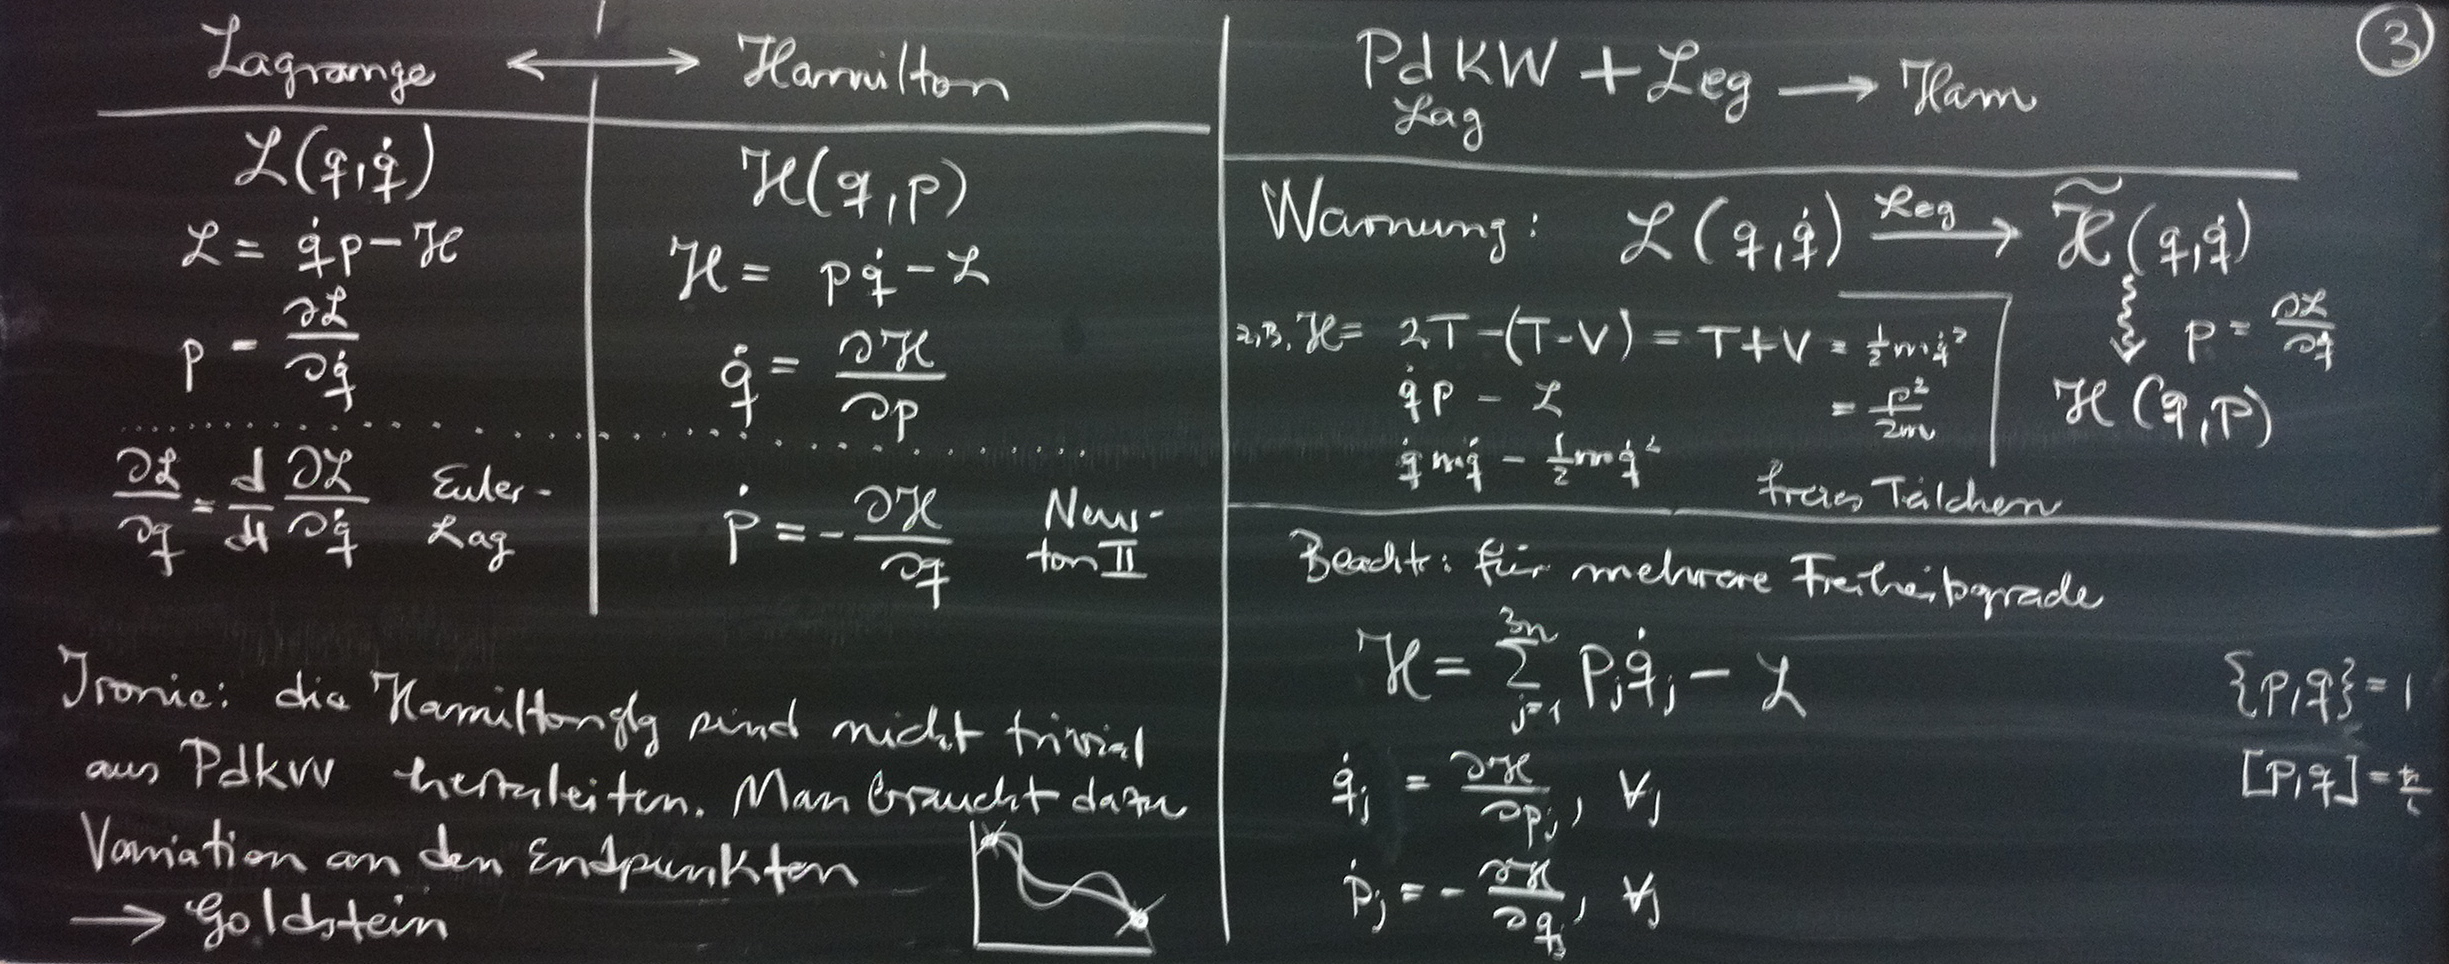 Lagrange ⟷ Hamilton
ℒ(q,q̇)
ℒ = q̇p − ℋ
p = ∂ℒ/∂q̇
∂ℒ/∂q = d/dt ∂ℒ/∂q̇ Euler-
Lag
ℋ(q,p)
ℋ = pq̇ − ℒ
q̇ = ∂ℋ/∂p
ṗ = − ∂ℋ/∂q New-
ton II
Ironie: die Hamiltonglg sind nicht trivial
aus PdkW herzuleiten. Man braucht dazu
Variation an den Endpunkten
→ Goldstein
③
PdKW + Leg → Ham
Lag
Warnung: ℒ(q,q̇) Leg→ ℋ̃(q,q̇)
p = ∂ℒ/∂q̇
ℋ(q,p)
z.B. ℋ = 2T − (T−V) = T+V = ½mq̇²
q̇p − ℒ = p²/2m
q̇mq̇ − ½mq̇²
freies Teilchen
Beachte: für mehrere Freiheitsgrade
ℋ = Σ_{j=1}^{3n} p_j q̇_j − ℒ
q̇_j = ∂ℋ/∂p_j, ∀j
ṗ_j = − ∂ℋ/∂q_j, ∀j
{p,q} = 1
[p,q] = ℏ/i